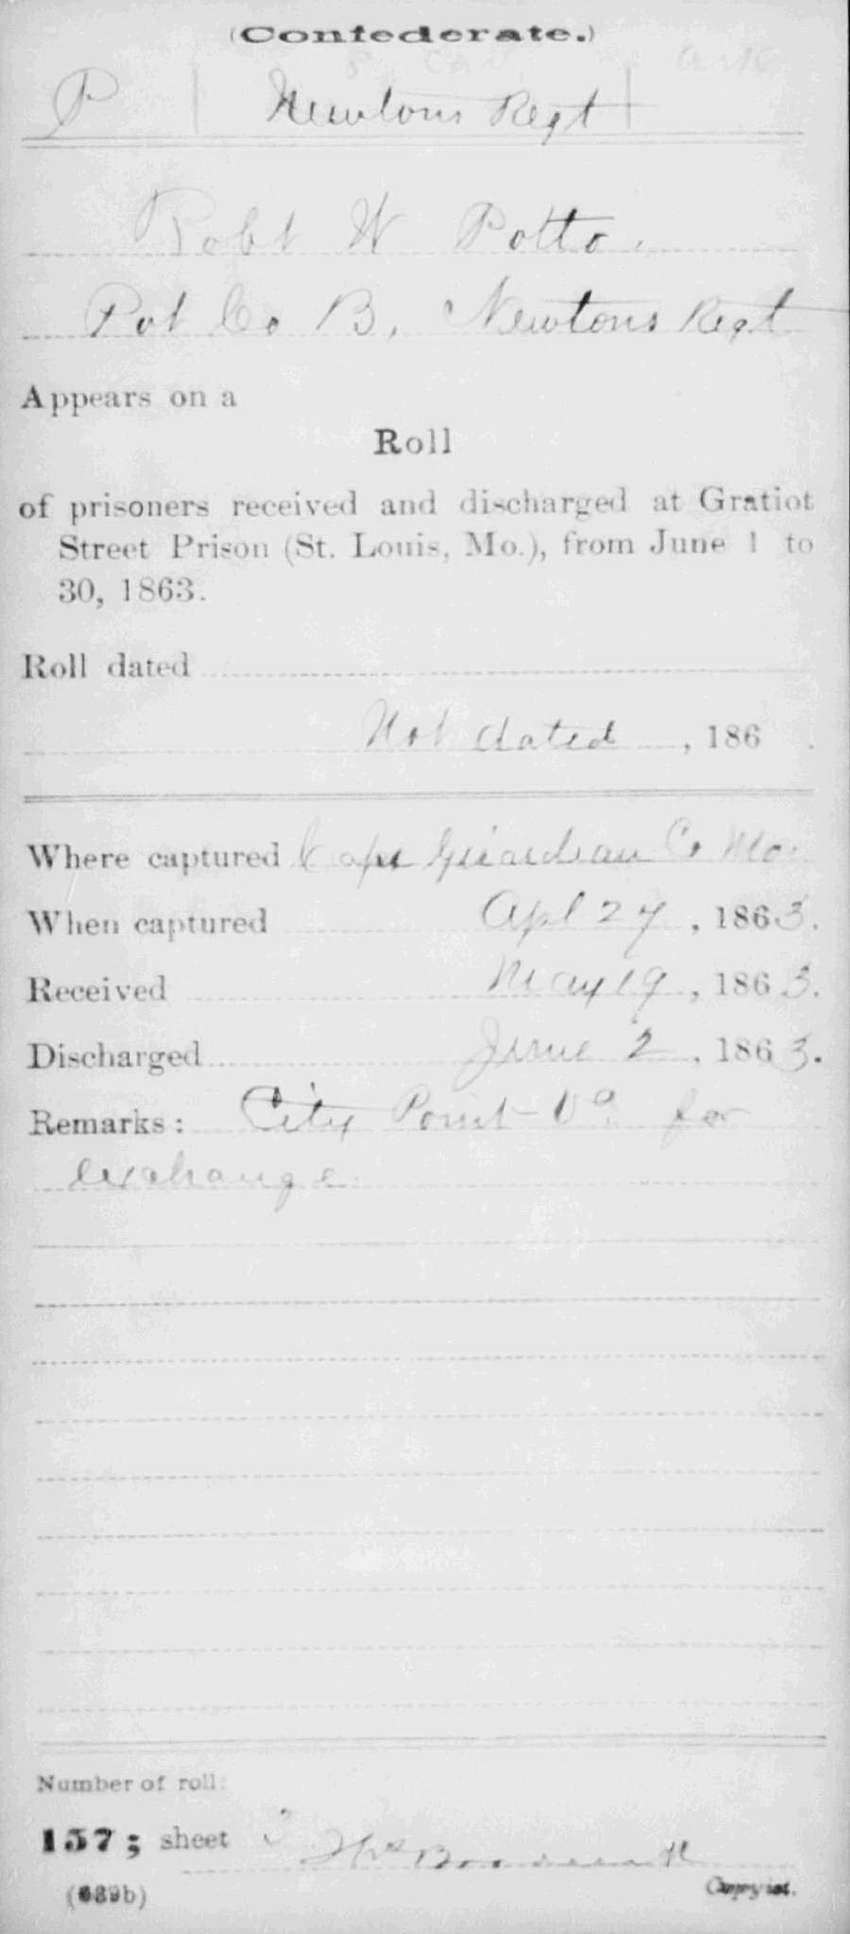 (Confederate.)
8 Cav Ark
P | Newtons Regt |
Robt W Potts.
Pvt Co B, Newtons Regt
Appears on a
Roll
of prisoners received and discharged at Gratiot
Street Prison (St. Louis, Mo.), from June 1 to
30, 1863.
Roll dated
Not dated, 186 .
Where captured Cape Girardeau Co Mo.
When captured Apl 27, 1863.
Received May 19, 1863.
Discharged June 2, 1863.
Remarks: City Point Va for
exchange
Number of roll:
157; sheet
(639b) Copyist.